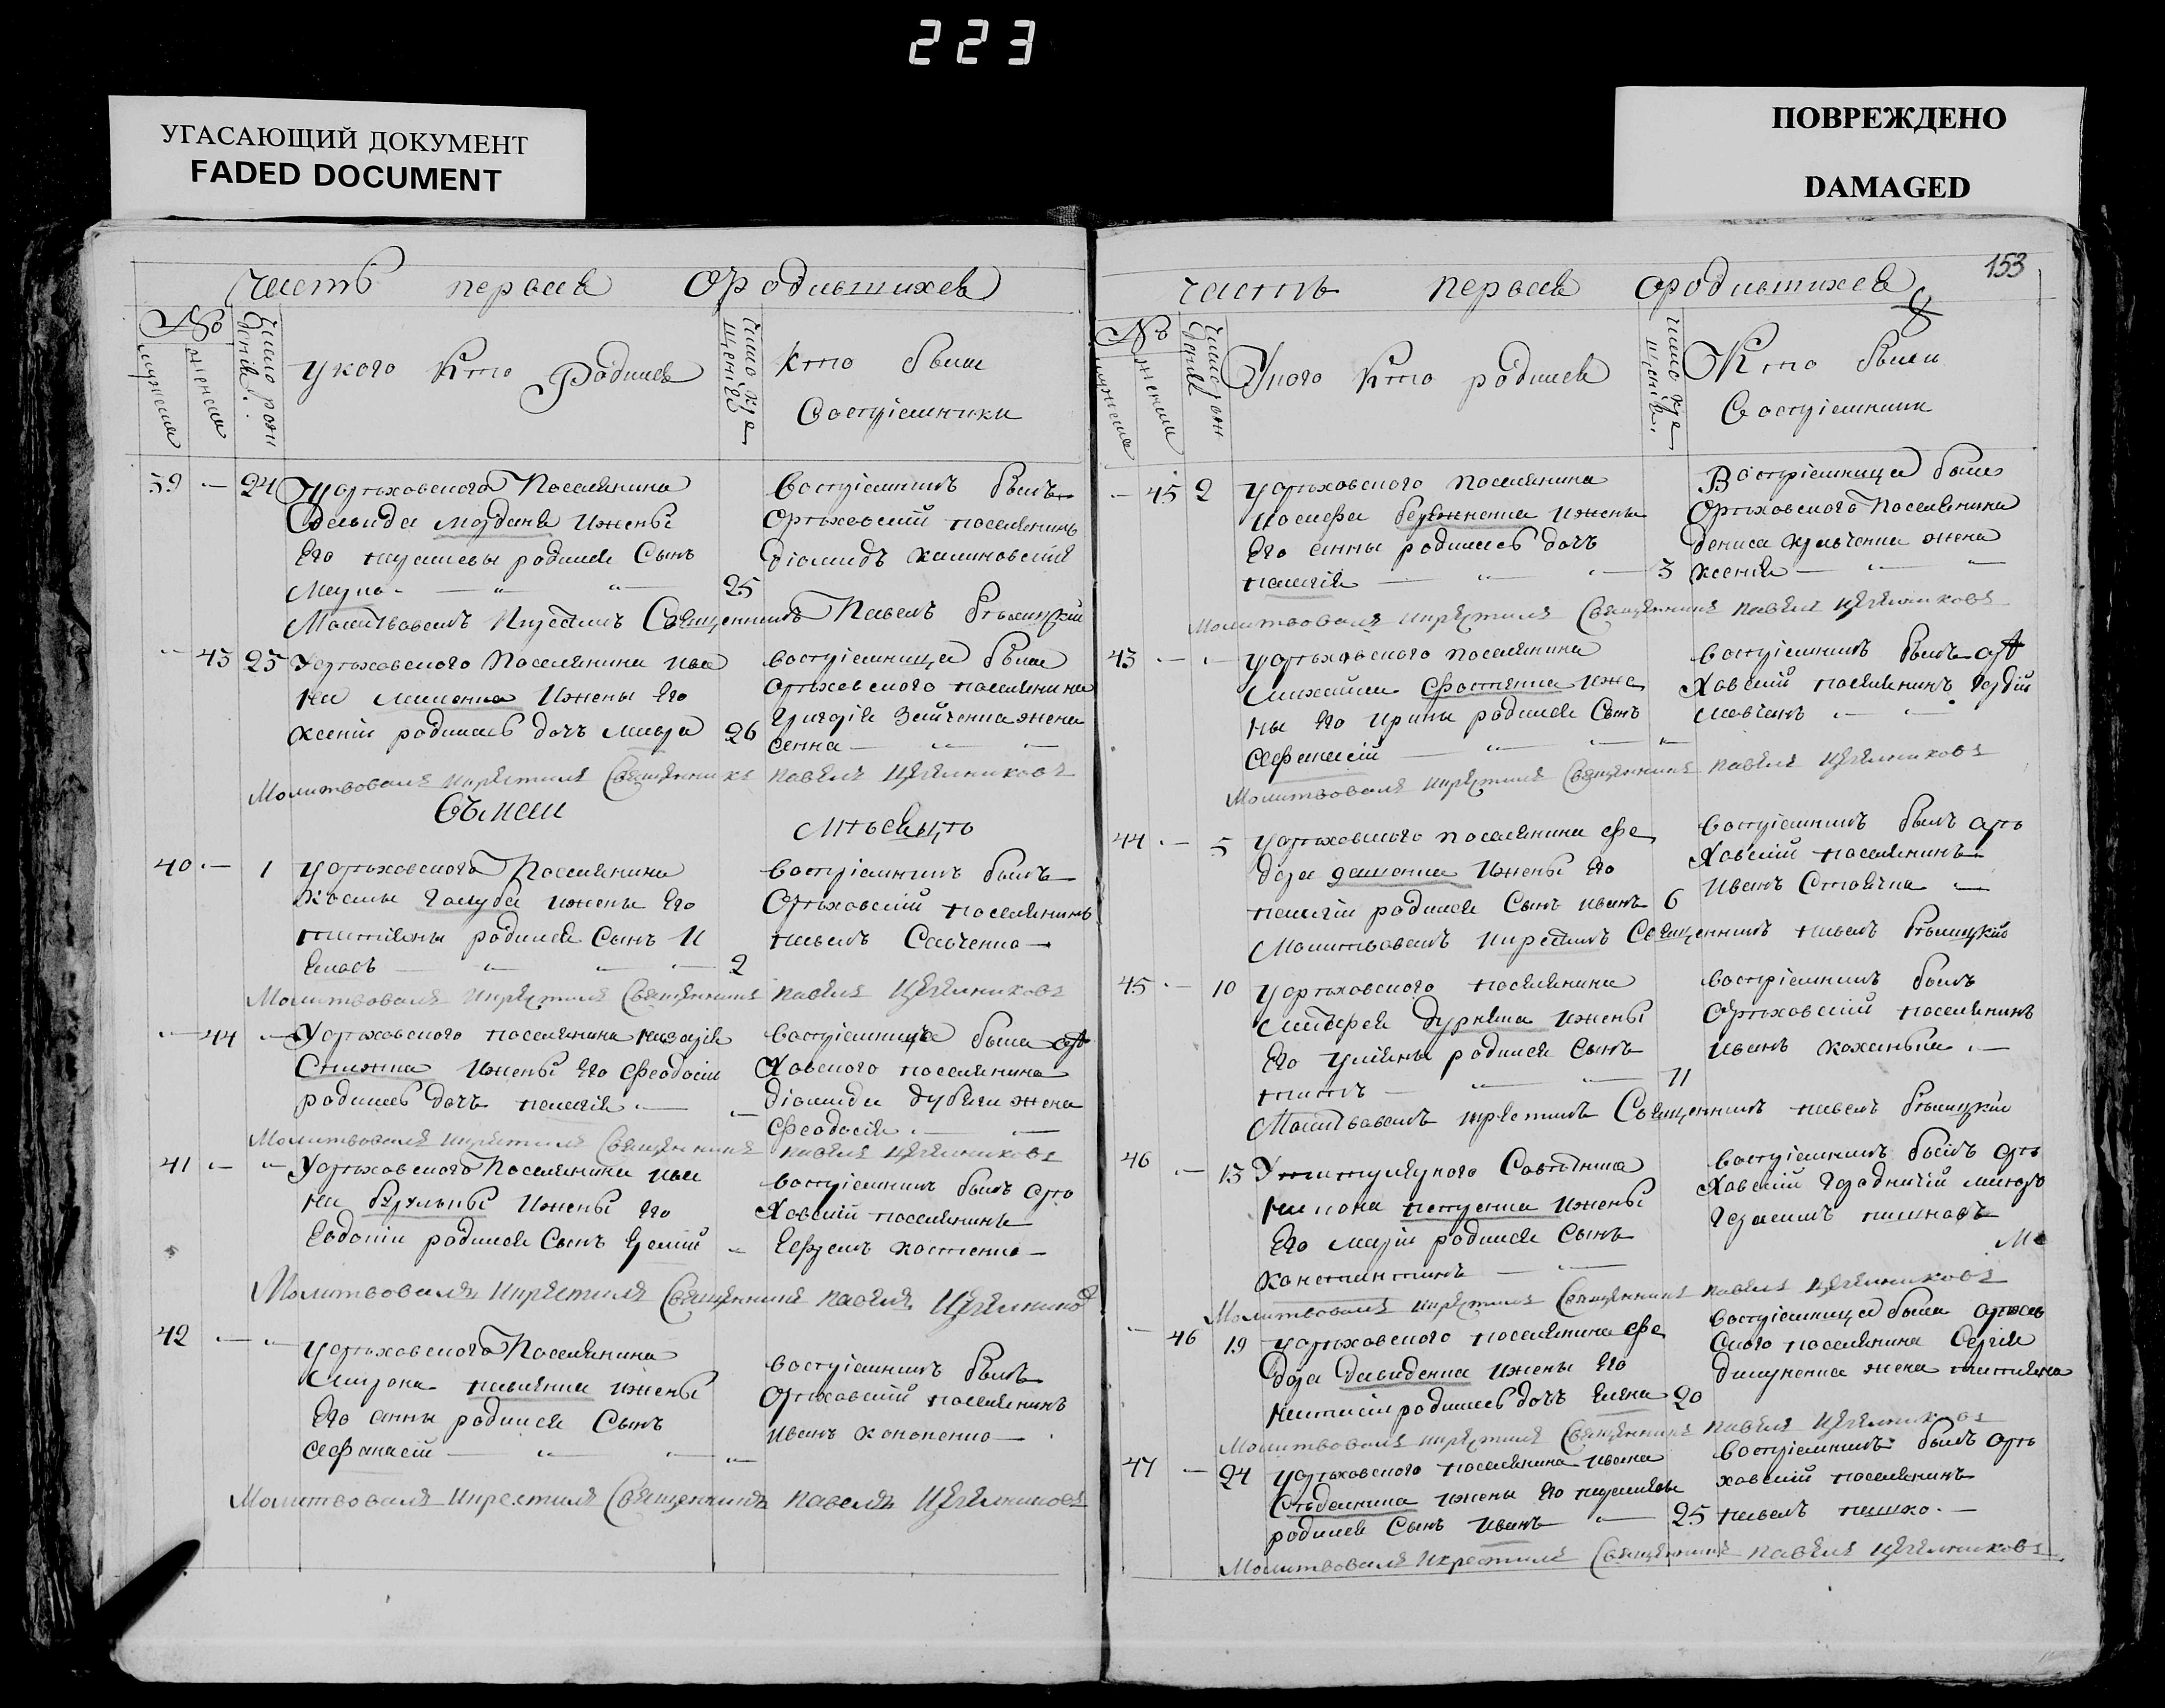 223
УГАСАЮЩИЙ ДОКУМЕНТ
FADED DOCUMENT
ПОВРЕЖДЕНО
DAMAGED
часть первая Ородившихся
№
мужеска
женска
Число рож
денія
укого Кто Родился
Число кре
щенія
кто были
Воспріемники
39 — 24 Уорѣховского Поселянина
Давида Мозданя Ижены
Его параскевы родился Сынъ
Марко 25
Воспріемникъ былъ
Орѣховский поселянинъ
діомидъ Калиновский
Молитвовалъ Икрестилъ Священникъ Павелъ Бѣлицкий
— 43 25 Уорѣховского Поселянина Ива
на Ижены Его
Ксении родилась дочъ 26
воспріемница была
орѣховского поселянина
Григорія Зайченка жена
анна
Молитвовалъ икрестилъ Священникъ Павелъ Цегелниковъ
мѣсяцъ
40 — 1 Уорѣховского Поселянина
Космы Голуба ижены Его
татияны родился Сынъ И
гнатъ 2
воспріемникъ былъ
Орѣховский поселянинъ
павелъ Савченко
Молитвовалъ икрестилъ Священникъ Павелъ Цегелниковъ
— 44 — Уорѣховского поселянина
Ижены Его Феодосии
родилась дочъ пелагія
воспріемница была орѣ
Ховского поселянина
діомида дубини жена
Феодосія
Молитвовалъ икрестилъ Священникъ Павелъ Цегелниковъ
41 — Уорѣховского Поселянина Ива
на Ижены Его
Евдокии родился Сынъ
воспріемникъ былъ орѣ
Ховский поселянинъ
Ефремъ Костенко
Молитвовалъ икрестилъ Священникъ Павелъ Цегелников
42 — Уорѣховского Поселянина
Мирона павленка ижены
Его анны родился Сынъ
Афанасий
воспріемникъ былъ
Орѣховский поселянинъ
иванъ Кононенко
Молитвовалъ икрестилъ Священникъ Павелъ Цегелниковъ
153
часть первая Ородившихся
№
мужеска
женска
Число рож
денія
Укого Кто родился
число кре
щенія
Кто были
Воспріемники
— 45 2 Уорѣховского поселянина
Иосифа ижены
Его анны родилась дочъ
пелагія 3
Воспріемница была
Орѣховского Поселянина
дениса кравченка жена
ксенія
Молитвовалъ икрестилъ Священникъ Павелъ Цегелниковъ
43 — Уорѣховского поселянина
Михайла Фостенка иже
ны Его ирины родился Сынъ
Афанасий
воспріемникъ былъ орѣ
Ховский поселянинъ Гордий
Молитвовалъ икрестилъ Священникъ Павелъ Цегелниковъ
44 — 5 Уорѣховского поселянина Фе
дора Ижены Его
пелагии родился Сынъ иванъ 6
воспріемникъ былъ орѣ
Ховский поселянинъ
Иванъ
Молитвовалъ икрестилъ Священникъ павелъ Бѣлицкий
45 — 10 Уорѣховского поселянина
Ижены
Его Улияны родился Сынъ
титъ 11
воспріемникъ былъ
Орѣховский поселянинъ
иванъ Коханый
Молитвовалъ икрестилъ Священникъ павелъ Бѣлицкий
46 — 13 Утитулярного Совѣтника
петренка Ижены
Его марии родился Сынъ
Константинъ
воспріемникъ былъ орѣ
Ховский Городничий миіоръ
Герасимъ
Молитвовалъ икрестилъ Священникъ Павелъ Цегелниковъ
— 46 19 Уорѣховского поселянина Фе
дора Давиденка ижены Его
родилась дочъ Елена 20
воспріемница была Орѣхов
Ского поселянина Сергія
жена татияна
Молитвовалъ икрестилъ Священникъ Павелъ Цегелниковъ
47 — 24 Уорѣховского поселянина ивана
ижены Его параскевы
родился Сынъ Иванъ 25
воспріемникъ былъ орѣ
ховский поселянинъ
павелъ
Молитвовалъ икрестилъ Священникъ Павелъ Цегелниковъ